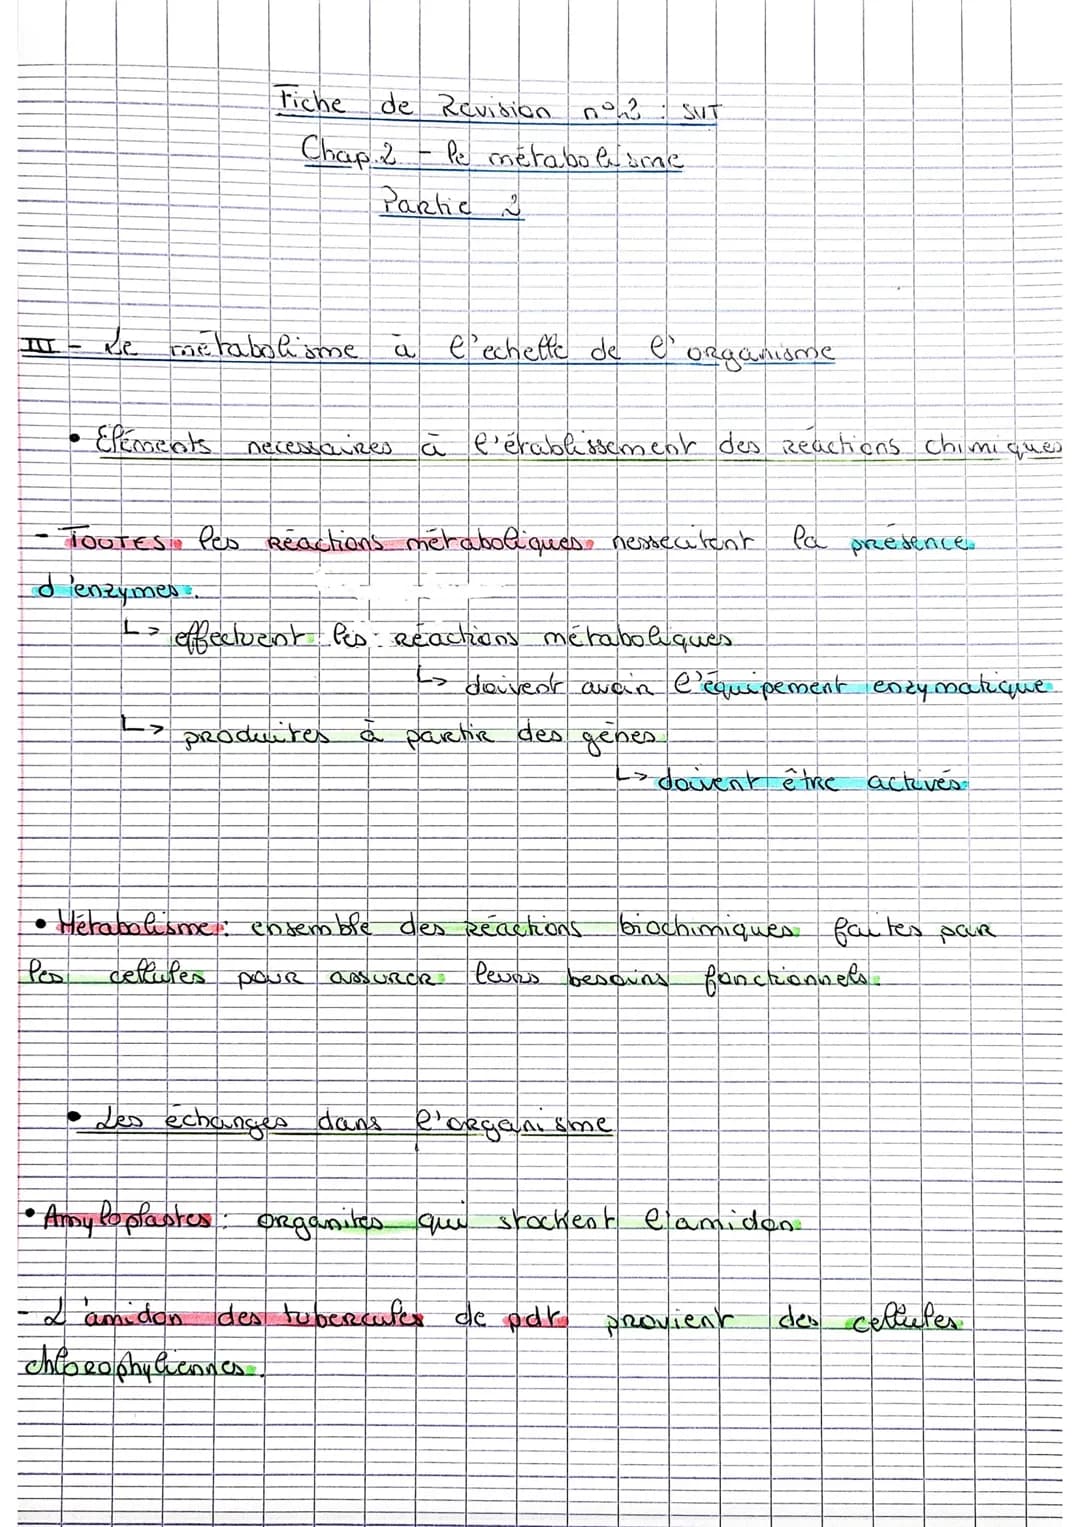 Fiche de Revision n°3 : SVT
Chap.2 - le métabolisme
Partie 2
III - Le métabolisme à l'echelle de l'organisme
• Eléments necessaires à l'établissement des réactions chimiques
- TOUTES les Réactions métaboliques nessecitent la présence
d'enzymes.
↳ effectuent les réactions métaboliques
↳ doivent avoir l'équipement enzymatique
↳ produites à partir des gènes
↳ doivent être activés
• Métabolisme : ensemble des réactions biochimiques faites par
les cellules pour assurer leurs besoins fonctionnels.
• Les échanges dans l'organisme
• Amyloplastes : organites qui stockent l'amidon
- L'amidon des tubercules de pdt provient des cellules
chlorophyliennes.